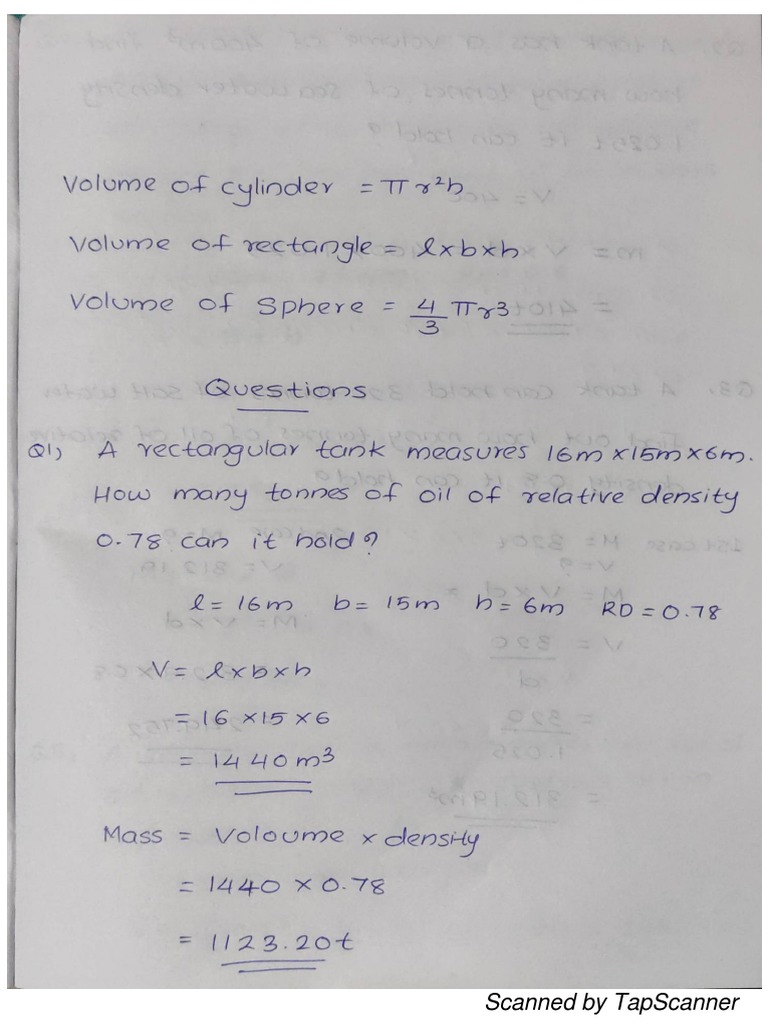 Volume of cylinder = πr²h
Volume of rectangle = l×b×h
Volume of Sphere = 4/3 πr3
Questions
Q1) A rectangular tank measures 16m×15m×6m.
How many tonnes of oil of relative density
0.78 can it hold?
l = 16m b = 15m h = 6m RD = 0.78
V = l×b×h
= 16×15×6
= 1440m³
Mass = Voloume × density
= 1440 × 0.78
= 1123.20t
Scanned by TapScanner